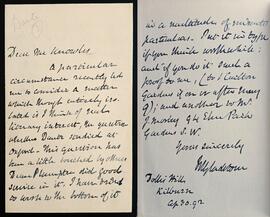 Dear Mr Knowles
A particular
circumstance recently led
me to consider a matter
which though entirely iso-
lated is I think of much
literary interest, the question
whether Dante studied at
Oxford. This question has
been a little touched by others
Dean Plumptre did good
service in it. I have tried
to work to the bottom of it
in a multitude of minute
particulars. Put it in type
if you think worthwhile:
and if you do it send a
proof to me, (to 1 Carlton
Gardens if on or after May
9); and another to Mr
J. Morley 95 Elm Park
Gardens S.W.
Yours sincerely
WEGladstone
Dollis Hill
Kilburn
Ap. 30. 92